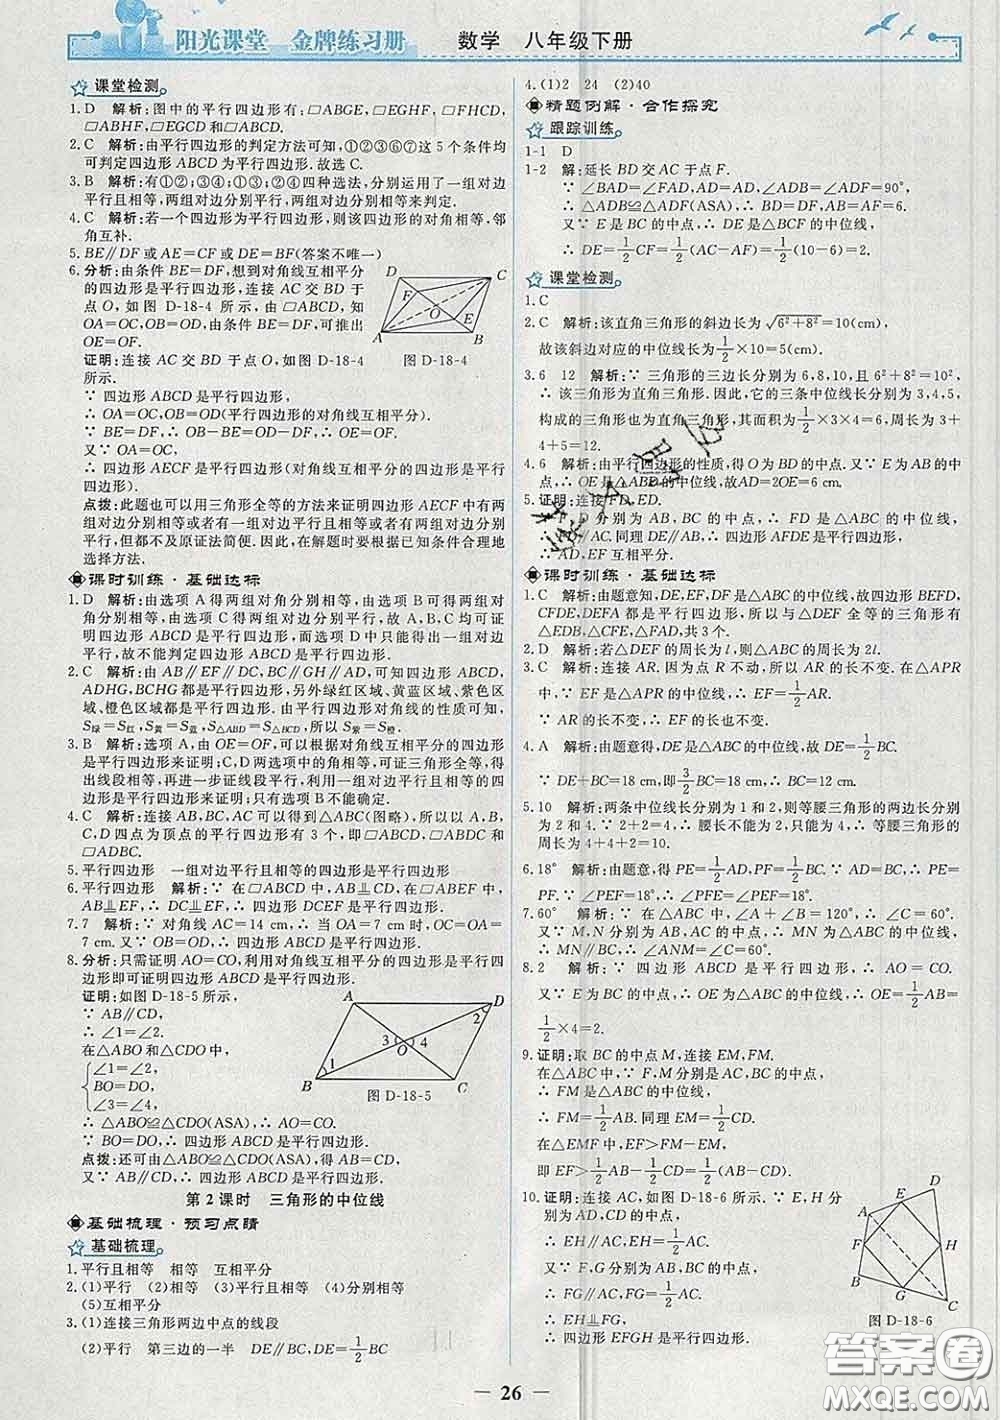 阳光课堂 金牌练习册 数学 八年级下册
课堂检测
1.D 解析:图中的平行四边形有:□ABGE,□EGHF,□FHCD,
□ABHF,□EGCD和□ABCD.
2.C 解析:由平行四边形的判定方法可知,①②③⑥⑦这5个条件均
可判定四边形ABCD为平行四边形.故选C.
3.B 解析:有①②;③④;①③;②④四种选法,分别运用了一组对边
平行且相等,两组对边分别平行,两组对边分别相等来判定.
4.C 解析:若一个四边形为平行四边形,则该四边形的对角相等,邻
角互补.
5.BE∥DF或AE=CF或DE=BF(答案不唯一)
6.分析:由条件BE=DF,想到对角线互相平分
的四边形是平行四边形,连接AC交BD于
点O,如图D-18-4所示,由□ABCD,知
OA=OC,OB=OD,由条件BE=DF,可推出
OE=OF.
证明:连接AC交BD于点O,如图D-18-4
所示.
D C F O E A B
图D-18-4
∵四边形ABCD是平行四边形,
∴OA=OC,OB=OD(平行四边形的对角线互相平分).
∵BE=DF,∴OB-BE=OD-DF,∴OE=OF.
又∵OA=OC,
∴四边形AECF是平行四边形(对角线互相平分的四边形是平行
四边形).
点拨:此题也可以用三角形全等的方法来证明四边形AECF中有两
组对边分别相等或者有一组对边平行且相等或者两组对边分别平
行,但都不及原证法简便.因此,在解题时要根据已知条件合理地
选择方法.
课时训练·基础达标
1.D 解析:由选项A得两组对角分别相等,由选项B可得两组对
角分别相等,由选项C得两组对边分别平行,故A,B,C均可证
明四边形ABCD是平行四边形,而选项D中只能得出一组对边平
行,故不能判定四边形ABCD是平行四边形.
2.C 解析:由AB∥EF∥DC,BC∥GH∥AD,可知四边形ABCD,
ADHG,BCHG都是平行四边形,另外绿红区域、黄蓝区域、紫色区
域、橙色区域都是平行四边形.由平行四边形对角线的性质可知,
S绿=S红,S黄=S蓝,S△ABD=S△BCD,所以S紫=S橙.
3.B 解析:选项A,由OE=OF,可以根据对角线互相平分的四边形
是平行四边形来证明;C,D两选项中的角相等,可证三角形全等,得
出线段相等,再进一步证线段平行,利用一组对边平行且相等的四
边形是平行四边形来证明;只有选项B不能确定.
4.C 解析:连接AB,AC,BC可以得到△ABC(图略),所以以A,B,
C,D四点为顶点的平行四边形有3个,即□ABCD,□ABDC和
□ADBC.
5.平行四边形 一组对边平行且相等的四边形是平行四边形
6.平行四边形 解析:∵在□ABCD中,AB⫫CD,在□ABEF中,
AB⫫EF,∴DC⫫EF,∴四边形DCEF是平行四边形.
7.7 解析:∵对角线AC=14 cm,∴当OA=7 cm时,OC=OA=
7 cm.又∵OB=OD,∴四边形ABCD是平行四边形.
8.分析:只需证明AO=CO,利用对角线互相平分的四边形是平行四
边形即可证明四边形ABCD是平行四边形.
证明:如图D-18-5所示,
∵AB∥CD,
∴∠1=∠2.
在△ABO和△CDO中,
∠1=∠2,
BO=DO,
∠3=∠4,
A D 2 3 4 O 1 B C
图D-18-5
∴△ABO≌△CDO(ASA),∴AO=CO.
∵BO=DO,∴四边形ABCD是平行四边形.
点拨:还可由△ABO≌△CDO(ASA),∴AB=CD.
又∵AB∥CD,∴四边形ABCD是平行四边形.
第2课时 三角形的中位线
基础梳理·预习点睛
基础梳理
1.平行且相等 相等 互相平分
2.(1)平行 (2)相等 (3)平行且相等 (4)分别相等
(5)互相平分
3.(1)连接三角形两边中点的线段
(2)平行 第三边的一半 DE∥BC,DE=1/2BC
4.(1)2 24 (2)40
精题例解·合作探究
跟踪训练
1-1 D
1-2 解:延长BD交AC于点F.
∵∠BAD=∠FAD,AD=AD,∠BDA=∠ADF=90°,
∴△ADB≌△ADF(ASA),∴BD=DF,AB=AF=6.
又∵E是BC的中点,∴DE是△BCF的中位线,
∴DE=1/2CF=1/2(AC-AF)=1/2(10-6)=2.
课堂检测
1.C
2.C 解析:该直角三角形的斜边长为√6²+8²=10(cm),
故该斜边对应的中位线长为1/2×10=5(cm).
3.6 12 解析:∵三角形的三边长分别为6,8,10,且6²+8²=10²,
∴该三角形为直角三角形.因此,它的三条中位线长分别为3,4,5,
构成的三角形也为直角三角形,其面积为1/2×3×4=6,周长为3+
4+5=12.
4.6 解析:由平行四边形的性质,得O为BD的中点.又∵E为AB的中
点,∴OE是△ABD的中位线,故AD=2OE=6 cm.
5.证明:连接FD,ED.
D分别为AB,BC的中点,∴FD是△ABC的中位线,
∥AC.同理DE∥AB,∴四边形AFDE是平行四边形,
∴AD,EF互相平分.
课时训练·基础达标
1.C 解析:由题意知,DE,EF,DF是△ABC的中位线,故四边形BEFD,
CFDE,DEFA都是平行四边形,所以与△DEF全等的三角形有
△EDB,△CFE,△FAD,共3个.
2.D 解析:若△DEF的周长为l,则△ABC的周长为2l.
3.C 解析:连接AR.因为点R不动,所以AR的长不变.在△APR
中,∵EF是△APR的中位线,∴EF=1/2AR.
∵AR的长不变,∴EF的长也不变.
4.A 解析:由题意得,DE是△ABC的中位线,故DE=1/2BC.
∵DE+BC=18 cm,即3/2BC=18 cm,∴BC=12 cm.
5.10 解析:两条中位线长分别为1和2,则等腰三角形的两边长分别为
2和4.∵2+2=4,∴腰长不能为2,只能是4,∴等腰三角形的
周长为4+4+2=10.
6.18° 解析:由题意,得PE=1/2AD,PF=1/2BC.∵AD=BC,∴PE=
PF.∵∠PEF=18°,∴∠PFE=∠PEF=18°.
7.60° 解析:∵在△ABC中,∠A+∠B=120°,∴∠C=60°.
又∵M,N分别为AB,AC的中点,∴MN为△ABC的中位线,
∴MN∥BC,∴∠ANM=∠C=60°.
8.2 解析:∵四边形ABCD是平行四边形,∴AO=CO.
又∵E为BC的中点,∴OE为△ABC的中位线,∴OE=1/2AB=
1/2×4=2.
9.证明:取BC的中点M,连接EM,FM.
在△ABC中,∵F,M分别是AC,BC的中点,
∴FM是△ABC的中位线,
∴FM=1/2AB.同理EM=1/2CD.
在△EMF中,EF>FM-EM,
即EF>1/2AB-1/2CD=1/2(AB-CD).
10.证明:连接AC,如图D-18-6所示,∵E,H分
别为AD,CD的中点,
∴EH∥AC,EH=1/2AC.
又∵F,G分别为AB,BC的中点,
∴FG∥AC,FG=1/2AC,
∴EH⫫FG,
∴四边形EFGH是平行四边形.
D E A F H B G C
图D-18-6
26
答案圈
MXQE.COM